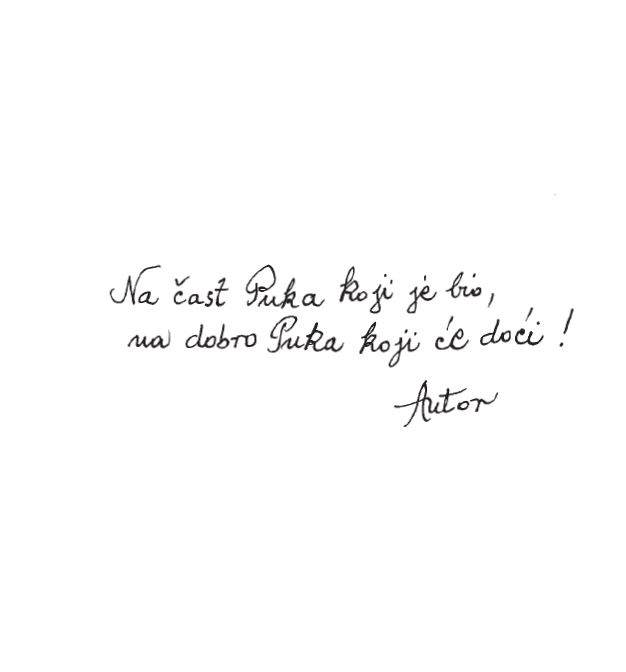 Na čast Puka koji je bio,
na dobro Puka koji će doći!
Autor